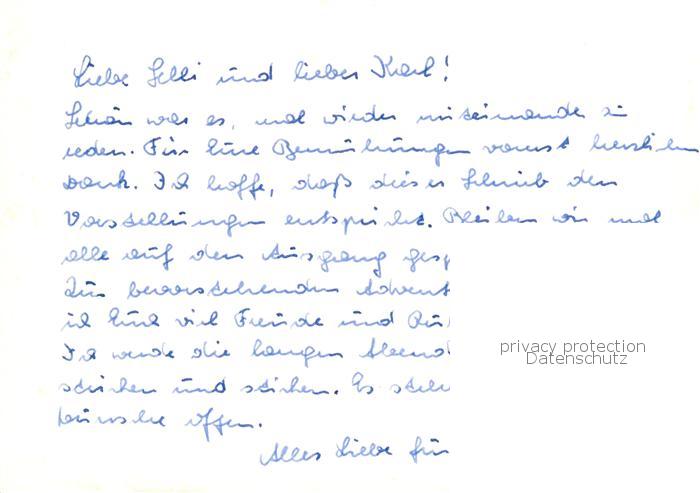 Liebe Lilli und lieber Karl!
Schön war es, mal wieder miteinander zu
reden. Für Eure Bemühungen vorerst herzlichen
Dank. Ich hoffe, daß dieser Schrieb den
Vorstellungen entspricht. Bleiben wir mal
alle auf den Ausgang gesp
Zur bevorstehenden Advent
ich Euch viel Freude und Ru
privacy protection
Datenschutz
Ich werde die langen Abend
stricken und sticken. Es steh
Wünsche offen.
Alles Liebe für